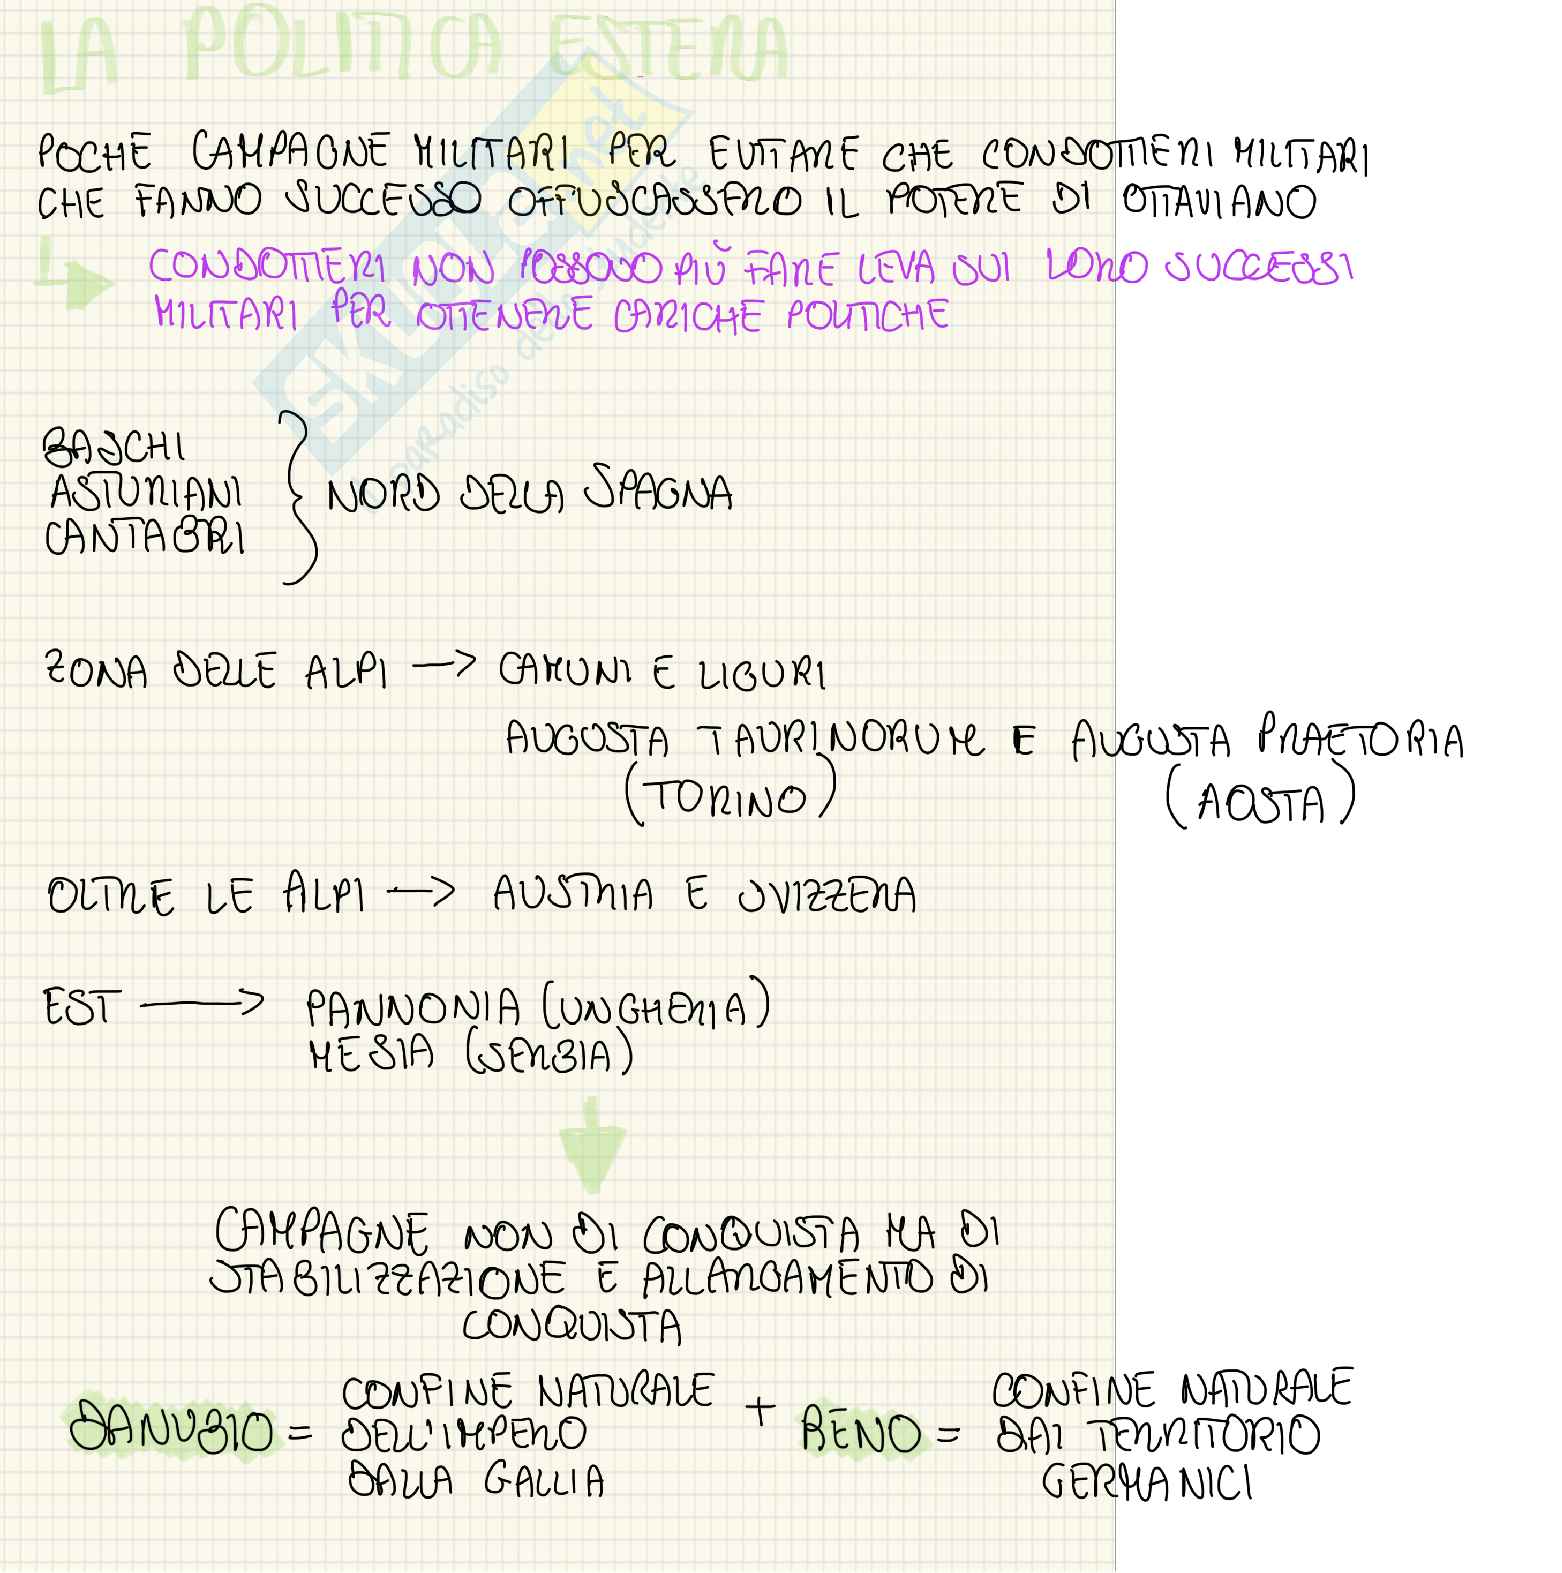 LA POLITICA ESTERA
POCHE CAMPAGNE MILITARI PER EVITARE CHE CONDOTTIERI MILITARI
CHE FANNO SUCCESSO OFFUSCASSERO IL POTERE DI OTTAVIANO
CONDOTTIERI NON POSSONO PIÙ FARE LEVA SUI LORO SUCCESSI
MILITARI PER OTTENERE CARICHE POLITICHE
BASCHI
ASTURIANI
CANTABRI
NORD DELLA SPAGNA
ZONA DELLE ALPI → CAMUNI E LIGURI
AUGUSTA TAURINORUM E AUGUSTA PRAETORIA
(TORINO) (AOSTA)
OLTRE LE ALPI → AUSTRIA E SVIZZERA
EST → PANNONIA (UNGHERIA)
MESIA (SERBIA)
CAMPAGNE NON DI CONQUISTA MA DI
STABILIZZAZIONE E ALLARGAMENTO DI
CONQUISTA
DANUBIO = CONFINE NATURALE
DELL'IMPERO
DALLA GALLIA
+ RENO = CONFINE NATURALE
DAI TERRITORIO
GERMANICI
SKUOLA.net
paradiso dello studente